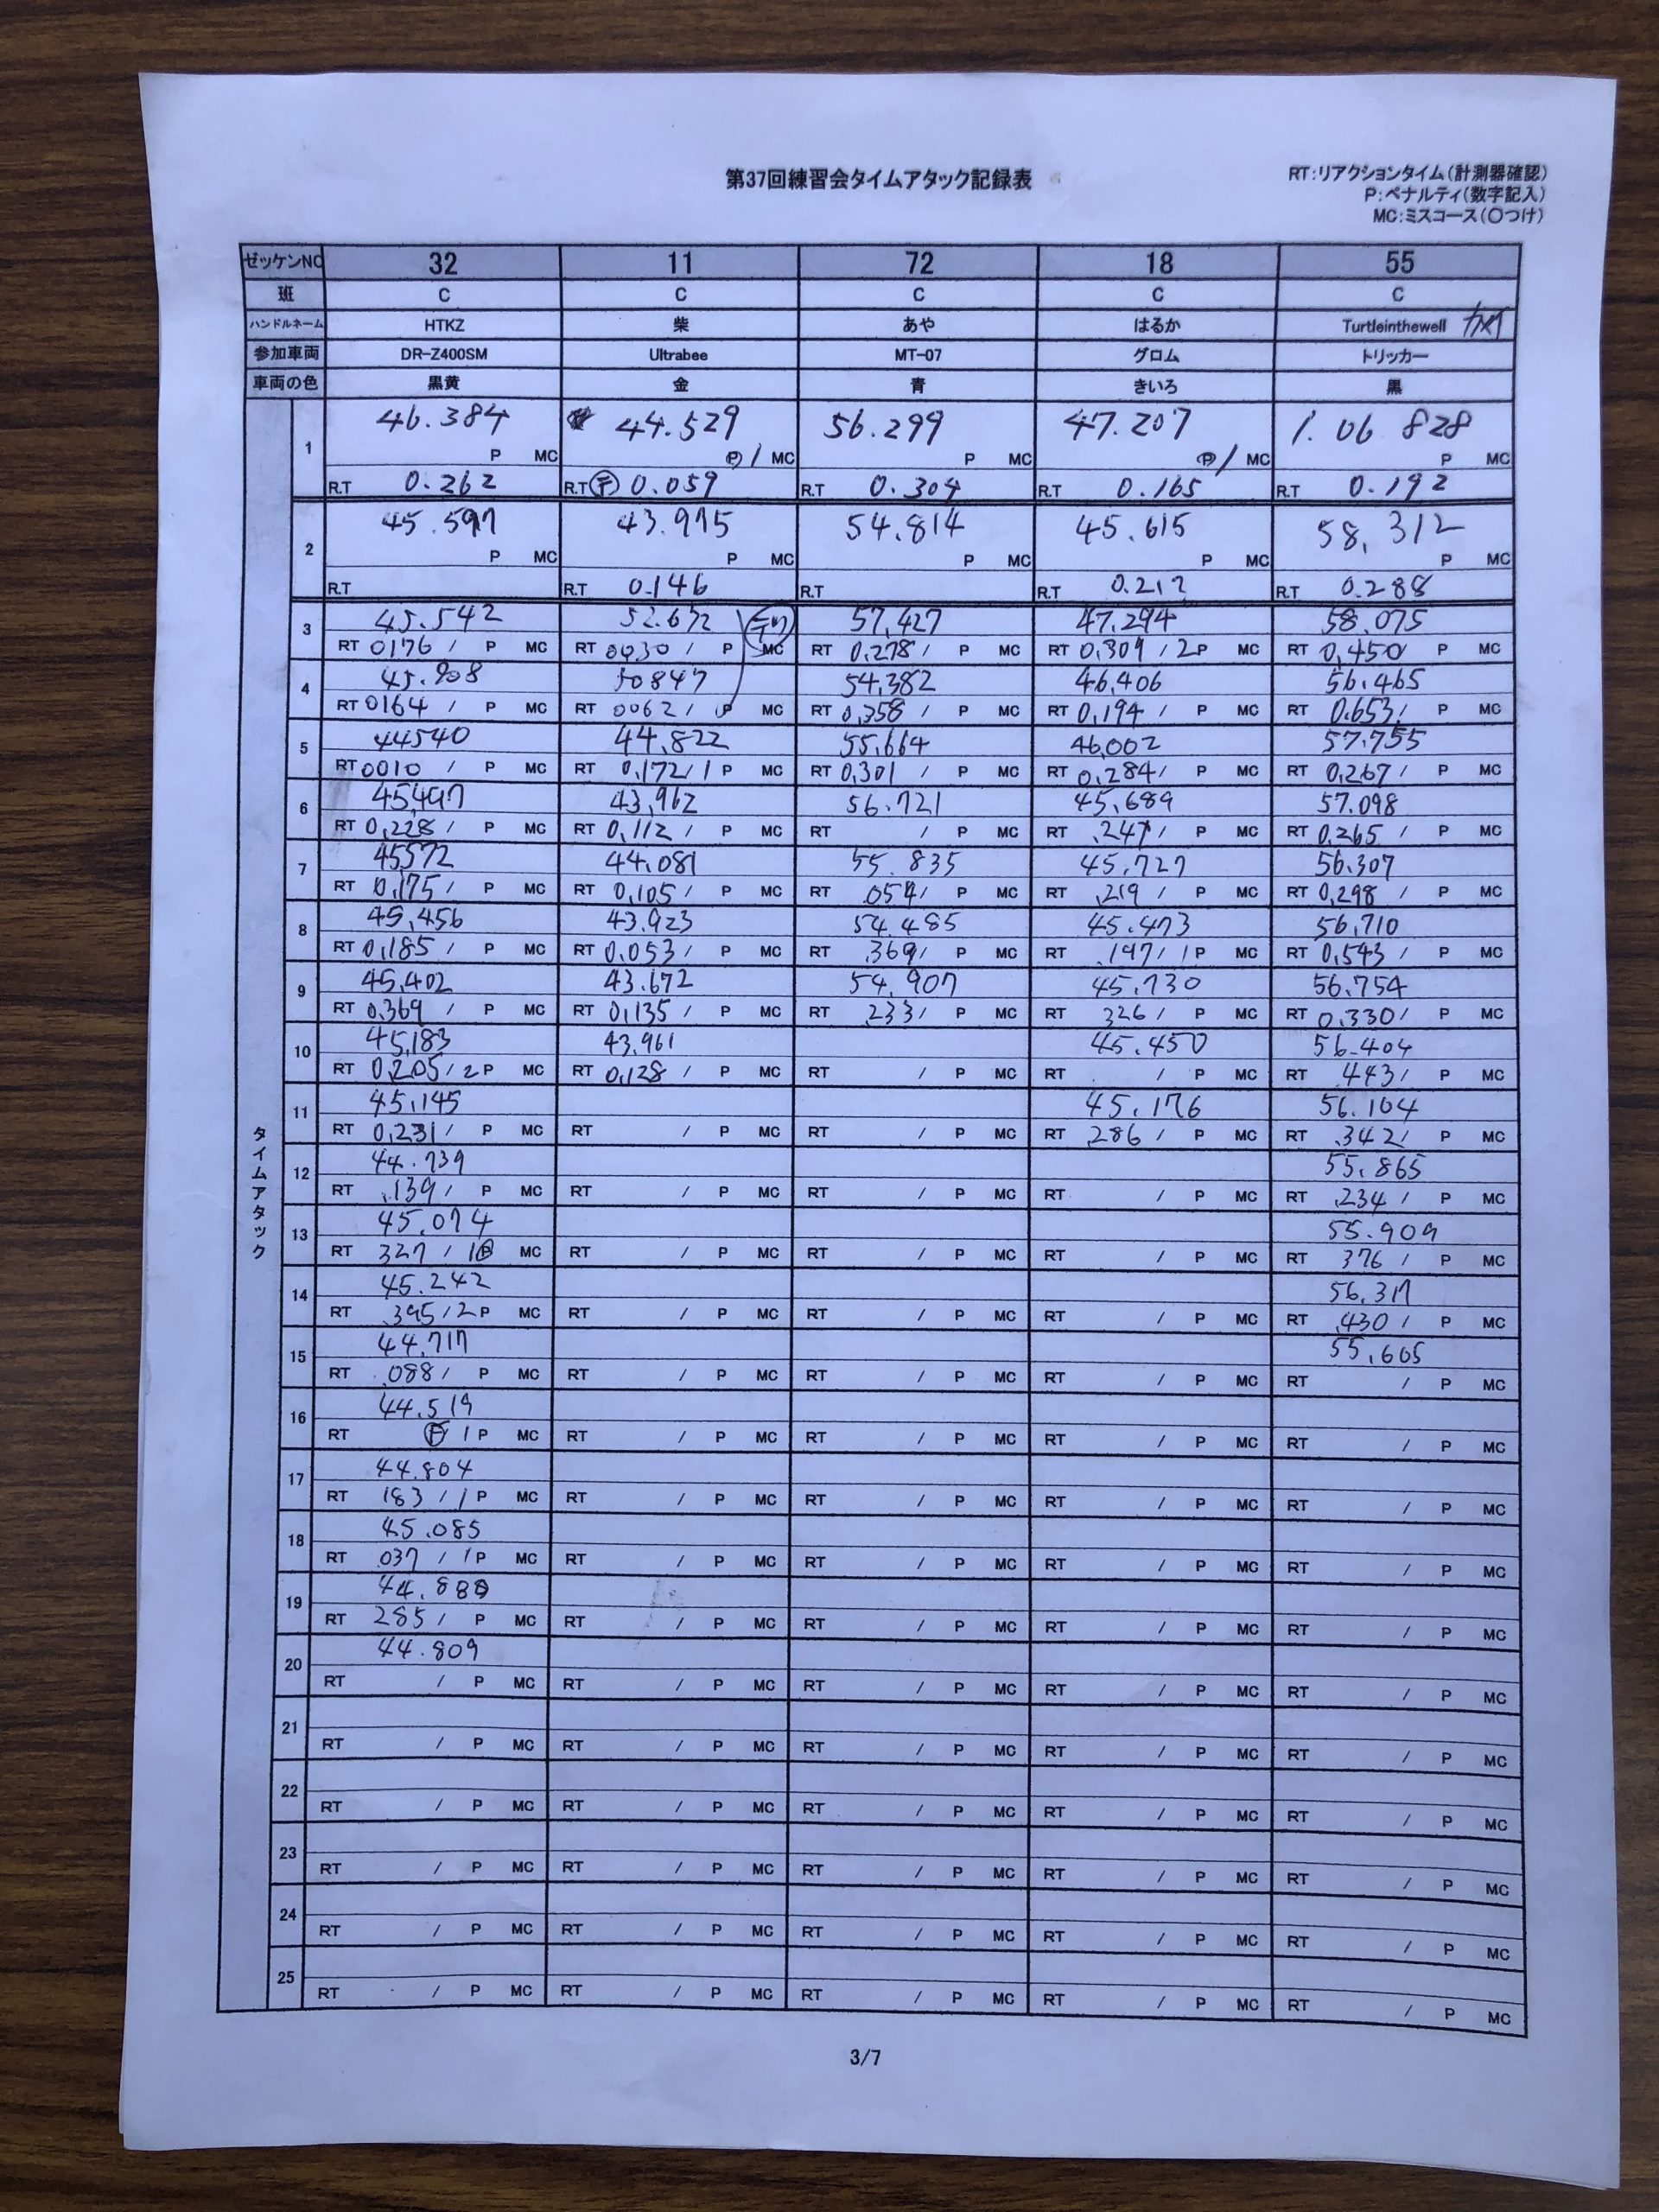 第37回練習会タイムアタック記録表
RT:リアクションタイム(計測器確認)
P:ペナルティ(数字記入)
MC:ミスコース(〇つけ)
ゼッケンNO 32 11 72 18 55
班 C C C C C
ハンドルネーム HTKZ 柴 あや はるか Turtleinthewell カメ
参加車両 DR-Z400SM Ultrabee MT-07 グロム トリッカー
車両の色 黒黄 金 青 きいろ 黒
タイムアタック
1 46.384 44.529 56.299 47.207 1.06 828
P MC P/MC P MC P/MC P MC
R.T 0.262 R.T 0.059 R.T 0.304 R.T 0.165 R.T 0.192
2 45.597 43.975 54.814 45.615 58.312
P MC P MC P MC P MC P MC
R.T R.T 0.146 R.T R.T 0.212 R.T 0.288
3 45.542 52.672 57,427 47.294 58.075
RT 0176 / P MC RT 0030 / P MC RT 0,278 / P MC RT 0,309 / 2P MC RT 0,450 P MC
4 45.908 50847 54,382 46,406 56.465
RT 0164 / P MC RT 0062 / P MC RT 0,358 / P MC RT 0,194 / P MC RT 0.653 / P MC
5 44540 44,822 55.664 46,002 57.755
RT 0010 / P MC RT 0,172 / 1 P MC RT 0,301 / P MC RT 0,284 / P MC RT 0,267 / P MC
6 45,497 43,962 56.721 45,689 57.098
RT 0,228 / P MC RT 0,112 / P MC RT / P MC RT .247 / P MC RT 0,265 / P MC
7 45,572 44.081 55.835 45.727 56.307
RT 0,175 / P MC RT 0,105 / P MC RT 054 / P MC RT .219 / P MC RT 0,298 / P MC
8 45,456 43.923 54.485 45.473 56,710
RT 0,185 / P MC RT 0.053 / P MC RT .369 / P MC RT .197 / 1P MC RT 0,543 / P MC
9 45,402 43.672 54.907 45.730 56.754
RT 0,369 / P MC RT 0,135 / P MC RT .233 / P MC RT 326 / P MC RT 0.330 / P MC
10 45,183 43.961 45.450 56.404
RT 0,205 / 2P MC RT 0,128 / P MC RT / P MC RT / P MC RT .443 / P MC
11 45,145 45.176 56.104
RT 0,231 / P MC RT / P MC RT / P MC RT .286 / P MC RT .342 / P MC
12 44.739 55.865
RT .139 / P MC RT / P MC RT / P MC RT / P MC RT .234 / P MC
13 45.074 55.909
RT 327 / 1P MC RT / P MC RT / P MC RT / P MC RT 376 / P MC
14 45.242 56.317
RT .395 / 2P MC RT / P MC RT / P MC RT / P MC RT .430 / P MC
15 44.717 55.605
RT .088 / P MC RT / P MC RT / P MC RT / P MC RT / P MC
16 44.519
RT Ⓕ 1 P MC RT / P MC RT / P MC RT / P MC RT / P MC
17 44.804
RT 183 / 1 P MC RT / P MC RT / P MC RT / P MC RT / P MC
18 45.085
RT 037 / 1P MC RT / P MC RT / P MC RT / P MC RT / P MC
19 44.888
RT 285 / P MC RT / P MC RT / P MC RT / P MC RT / P MC
20 44.809
RT / P MC RT / P MC RT / P MC RT / P MC RT / P MC
21
RT / P MC RT / P MC RT / P MC RT / P MC RT / P MC
22
RT / P MC RT / P MC RT / P MC RT / P MC RT / P MC
23
RT / P MC RT / P MC RT / P MC RT / P MC RT / P MC
24
RT / P MC RT / P MC RT / P MC RT / P MC RT / P MC
25
RT / P MC RT / P MC RT / P MC RT / P MC RT / P MC
3/7